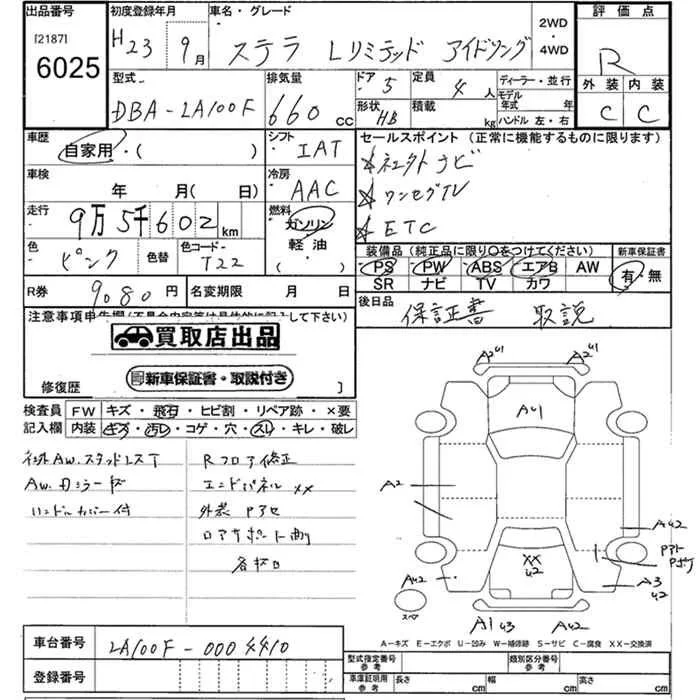 出品番号
[2187]
6025
初度登録年月
H23 9月
車名・グレード
ステラ Lリミテッド アイドリング
2WD
・
4WD
評価点
R
外装 内装
C C
型式
DBA-LA100F
排気量
660 cc
ドア 5
定員 4人
形状 HB
積載 kg
ディーラー・並行
モデル年式 年
ハンドル 左・右
車歴
自家用・( )
シフト
IAT
セールスポイント (正常に機能するものに限ります)
☆ネェクトナビ
☆ワンセグTV
☆ETC
車検
年 月( 日)
冷房
AAC
走行
9万5千602km
燃料
ガソリン
・
軽油
・( )
色
ピンク
色替
色コード
T22
装備品 (純正品に限り○をつけてください)
PS PW ABS エアB AW
SR ナビ TV カワ
新車保証書
有・無
R券
9080円
名変期限 月 日
後日品
保証書 取説
注意事項申告欄(不具合内容等は具体的に記入して下さい)
買取店出品
新車保証書・取説付き
修復歴 ]
検査員記入欄
FW キズ・飛石・ヒビ割・リペア跡・×要
内装 キズ・汚レ・コゲ・穴・スレ・キレ・破レ
社外AW.スタッドレスT
AW.カンラーズ
ハンドルカバー付
Rフロア修正
エンドパネル××
外装 Pアセ
ロアサポート曲り
各松日
A2u1 A2u1
AU1
A2
AU2
Pアト
AU2
××
u2
A3
u2
スペア
A1 U3 AU2
A-キズ E-エクボ U-凹み W-補修跡 S-サビ C-腐食 XX-交換済
車台番号
LA100F-0004410
登録番号
型式指定番号
参考
類別区分番号
参考
車庫証明用
参考
長さ cm
幅 cm
高さ cm